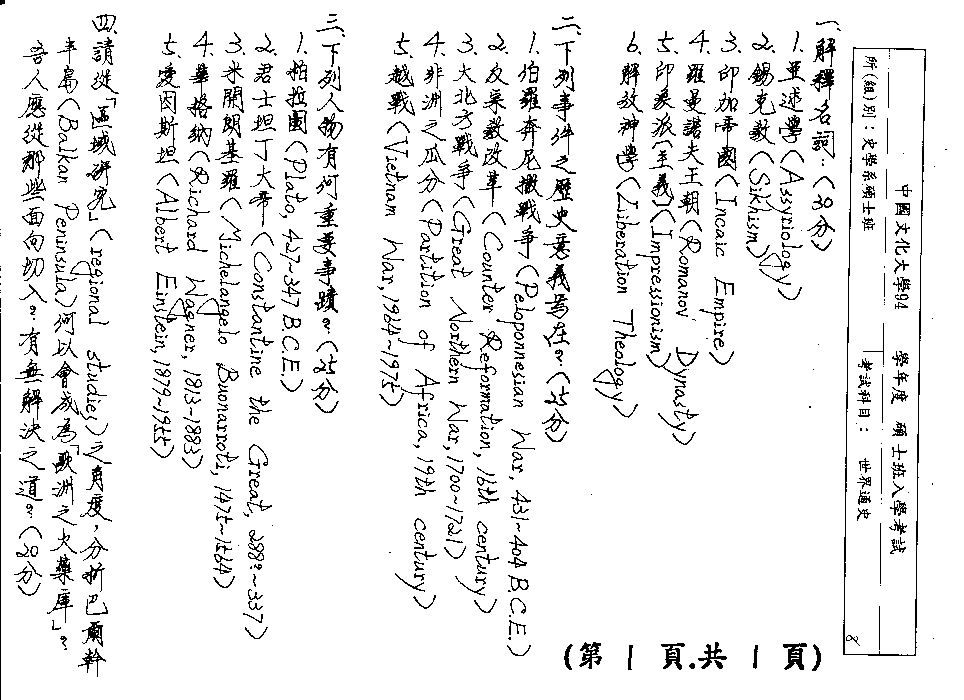 中國文化大學94 學年度 碩士班入學考試
所(組)別：史學系碩士班 考試科目：世界通史
8
一、解釋名詞：(30分)
1. 亞述學(Assyriology)
2. 錫克教(Sikhism)
3. 印加帝國(Incaic Empire)
4. 羅曼諾夫王朝(Romanov Dynasty)
5. 印象派[主義](Impressionism)
6. 解放神學(Liberation Theology)
二、下列事件之歷史意義為在?(25分)
1. 伯羅奔尼撒戰爭(Peloponnesian War, 431~404 B.C.E.)
2. 反宗教改革(Counter Reformation, 16th century)
3. 大北方戰爭(Great Northern War, 1700~1721)
4. 非洲之瓜分(Partition of Africa, 19th century)
5. 越戰(Vietnam War, 1964~1975)
三、下列人物有何重要事蹟?(25分)
1. 柏拉圖(Plato, 427~347 B.C.E.)
2. 君士坦丁大帝(Constantine the Great, 288?~337)
3. 米開朗基羅(Michelangelo Buonarroti, 1475~1564)
4. 華格納(Richard Wagner, 1813~1883)
5. 愛因斯坦(Albert Einstein, 1879~1955)
四、請從「區域研究」(regional studies)之角度，分析巴爾幹
半島(Balkan Peninsula)何以會成為「歐洲之火藥庫」?
吾人應從那些面向切入?有無解決之道?(20分)
(第 1 頁.共 1 頁)